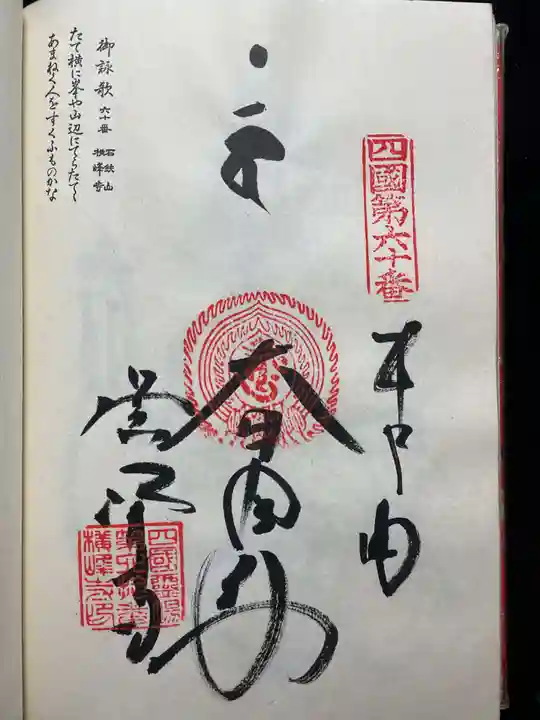 四國第六十番
奉納
大日如来
横峰寺
四國霊場
第六十番
横峰寺印
御詠歌 六十番 石鈇山 横峰寺
たて横に峯や山辺にてらたてゝ
あまねく人をすくふものかな